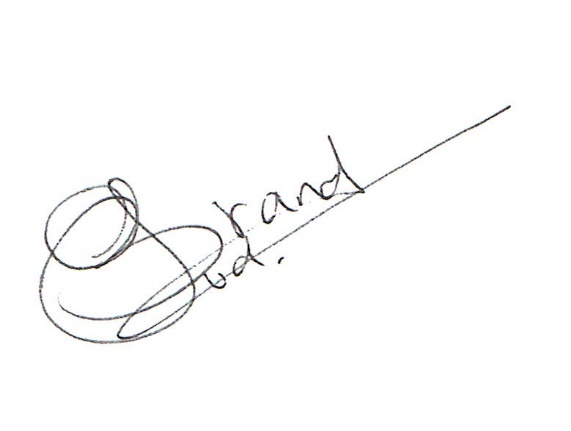 Grand
ud.